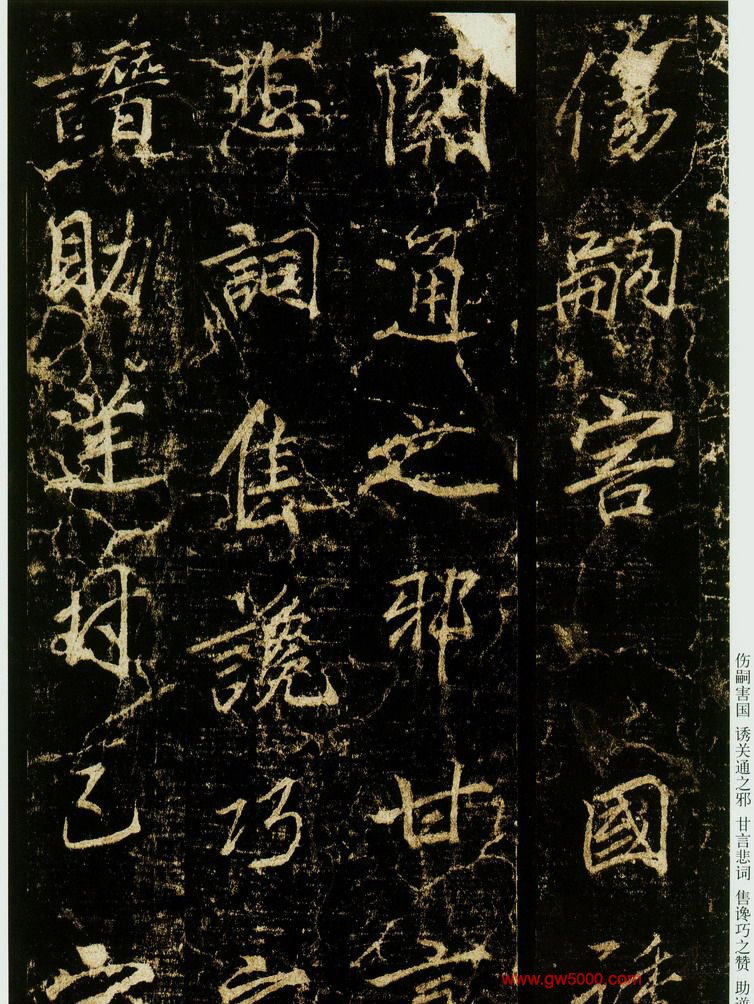 傷嗣害國
關通之邪甘言
悲詞售讒巧之
譖助逆封己
伤嗣害国 诱关通之邪 甘言悲词 售谗巧之赞 助
www.gw5000.com